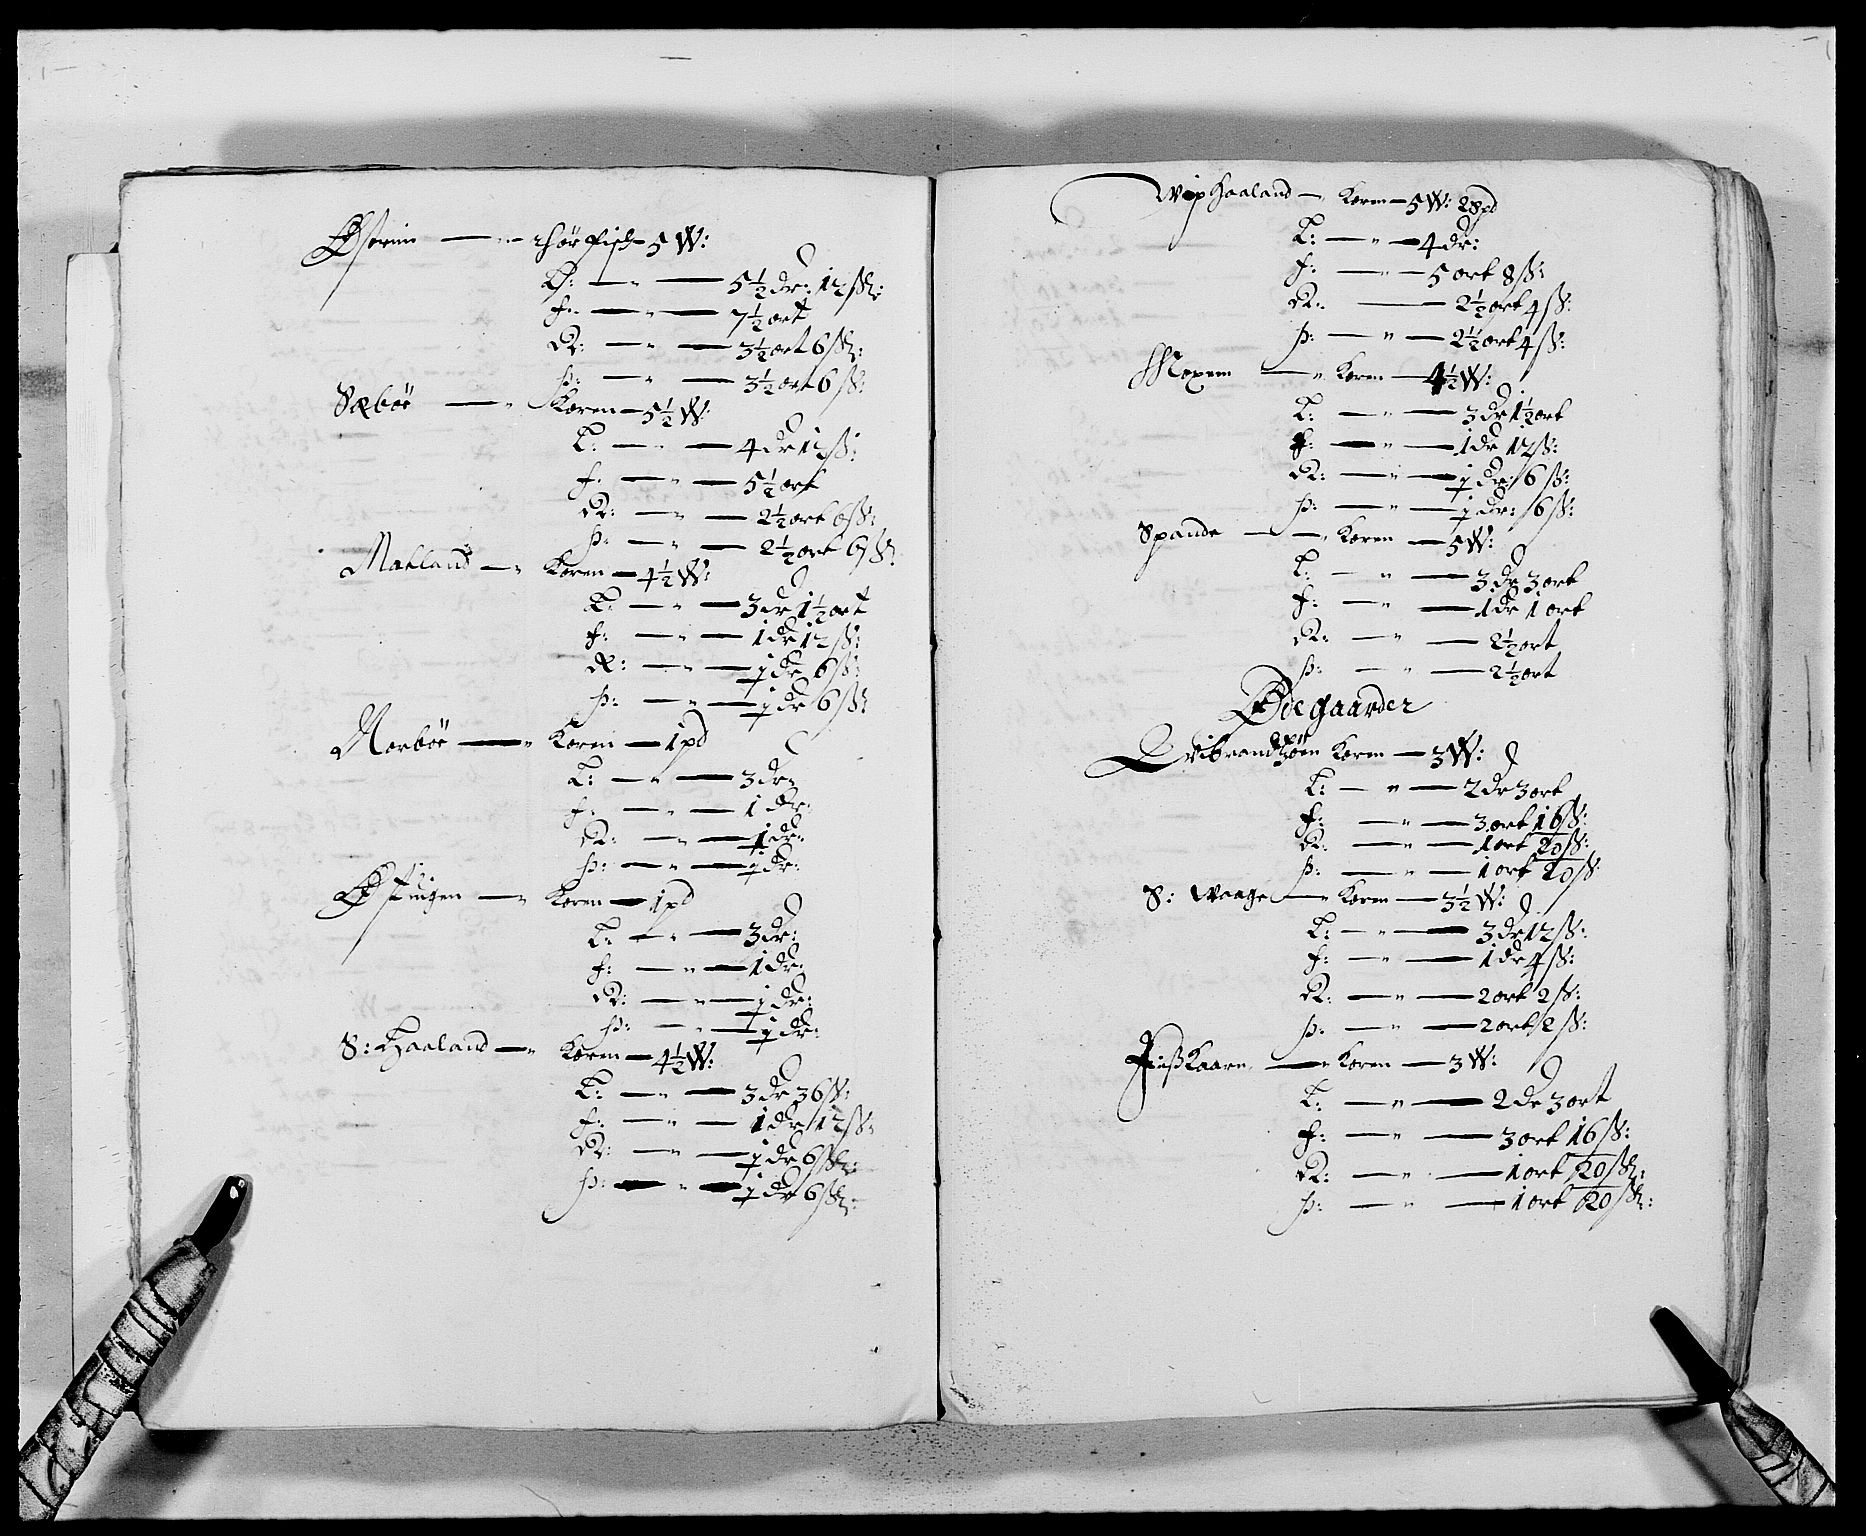 Østrim — " — thör fisk — 5 W:
L: — " — 5½ dr: 12 ß:
f: — " — 7½ ort
D: — " — 3½ ort 6 ß:
H: — " — 3½ ort 6 ß:
Sæböe — " Koren — 5½ W:
L: — " — 4 dr 12 ß:
f: — " — 5½ ort
D: — " — 2½ ort 6 ß:
H: — " — 2½ ort 6 ß:
Matland — " Koren — 4½ W:
L: — " — 3 dr 1½ ort
f: — " — 1 dr 12 ß:
D: — " — ½ dr 6 ß:
H: — " — ½ dr 6 ß:
Norböe — " Koren — 1 pd
L: — " — 3 dr:
f: — " — 1 dr:
D: — " — ½ dr:
H: — " — ½ dr:
Østingen — " Koren — 1 pd
L: — " — 3 dr:
f: — " — 1 dr:
D: — " — ½ dr:
H: — " — ½ dr:
S: Haaland — " Koren — 4½ W:
L: — " — 3 dr 36 ß:
f: — " — 1 dr 12 ß:
D: — " — ½ dr 6 ß:
H: — " — ½ dr 6 ß:
Haaland — " Koren — 5 W: 28 pd
L: — " — 4 dr:
f: — " — 5 ort 8 ß:
D: — 2½ ort 4 ß:
H: — " — 2½ ort 4 ß:
— " Koren — 4½ W:
L: — " — 3 dr 1½ ort
f: — " — 1 dr 12 ß:
D: — " — ½ dr: 6 ß:
H: — " — ½ dr: 6 ß:
Spande — " Koren — 5 W:
L: — " — 3 dr 3 ort
f: — " — 1 dr 1 ort
D: — " — 2½ ort
H: — " — 2½ ort
Ødegaarder
Koren — 3 W:
L: — " — 2 dr 3 ort
f: — " — 3 ort 16 ß:
D: — " — 1 ort 20 ß:
H: — " — 1 ort 20 ß:
S: Waage — " Koren — 3½ W:
L: — " — 3 dr 12 ß:
f: — " — 1 dr 4 ß:
D: — " — 2 ort 2 ß:
H: — " — 2 ort 2 ß:
— " Koren — 3 W:
L: — " — 2 dr 3 ort
f: — " — 3 ort 16 ß:
D: — " — 1 ort 20 ß:
H: — " — 1 ort 20 ß: